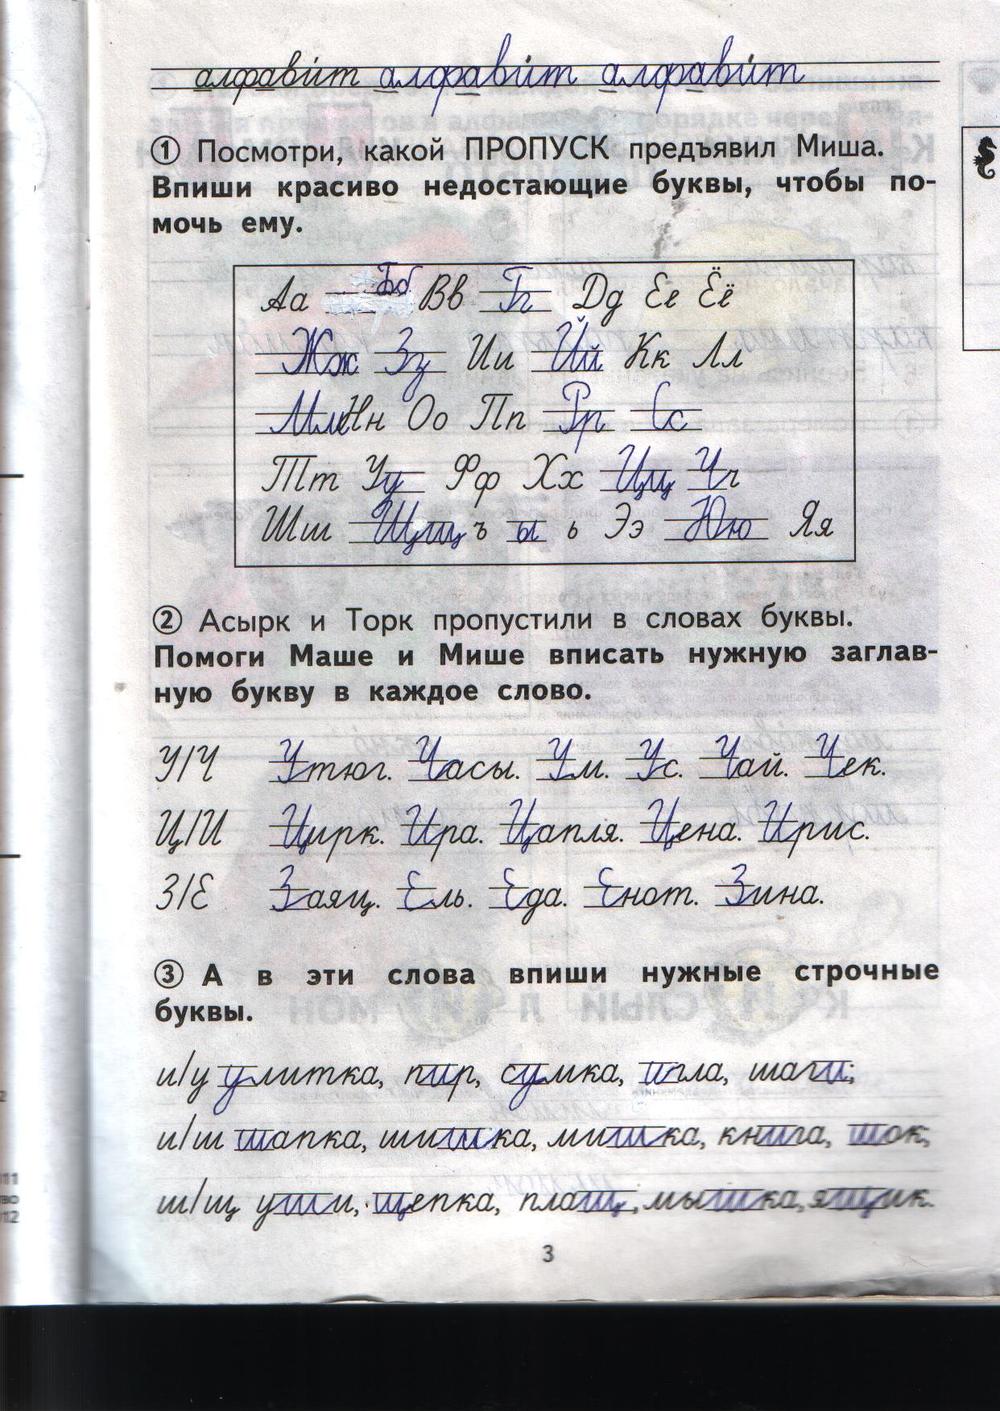 алфавит алфавит алфавит
① Посмотри, какой ПРОПУСК предъявил Миша.
Впиши красиво недостающие буквы, чтобы по-
мочь ему.
Аа Бб Вв Гг Дд Ее Ёё
Жж Зз Ии Йй Кк Лл
Мм Нн Оо Пп Рр Сс
Тт Уу Фф Хх Цц Чч
Шш Щщ ъ ы ь Ээ Юю Яя
② Асырк и Торк пропустили в словах буквы.
Помоги Маше и Мише вписать нужную заглав-
ную букву в каждое слово.
У/Ч Утюг. Часы. Ум. Ус. Чай. Чек.
Ц/И Цирк. Ира. Цапля. Цена. Ирис.
З/Е Заяц. Ель. Еда. Енот. Зина.
③ А в эти слова впиши нужные строчные
буквы.
и/у улитка, пир, сумка, игла, шаги;
и/ш шапка, шишка, мишка, книга, шок;
ш/щ уши, щепка, плащ, мышка, ящик.
3